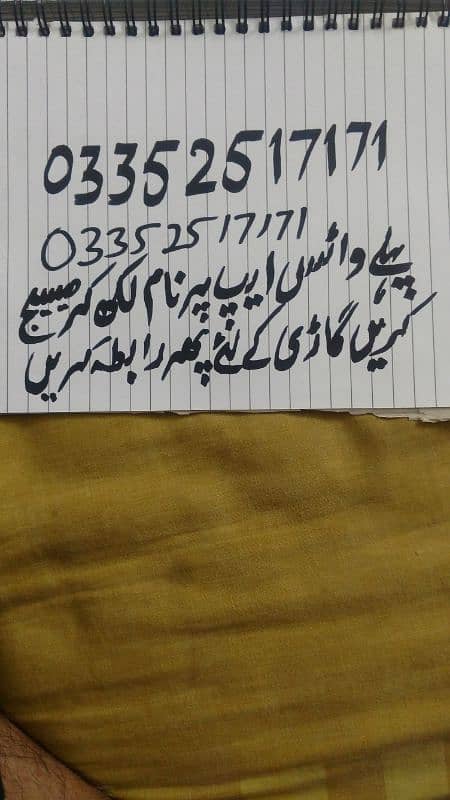 03352517171
03352517171
پہلے واٹس ایپ پر نام لکھ کر میسیج
کریں گاڑی کے لئے پھر رابطہ کریں